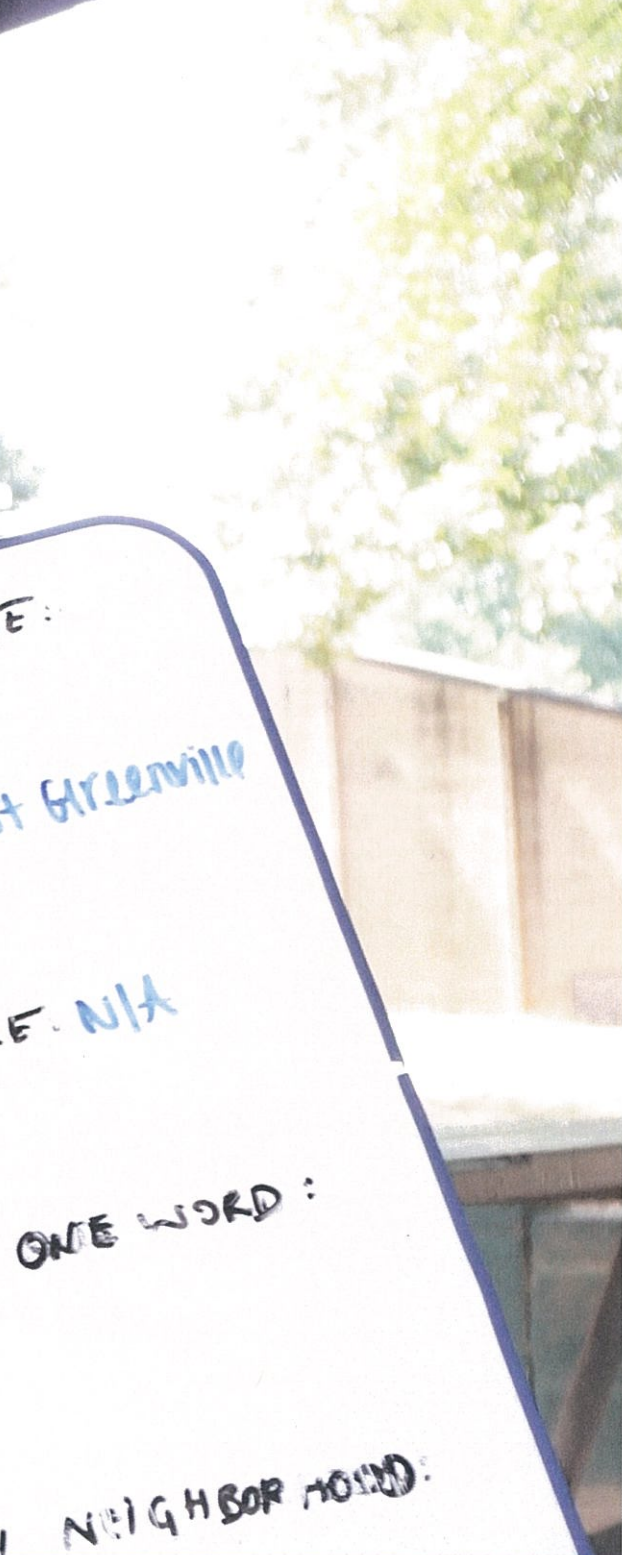 E:
t Greenville
E: N/A
ONE WORD:
NEIGHBORHOOD: